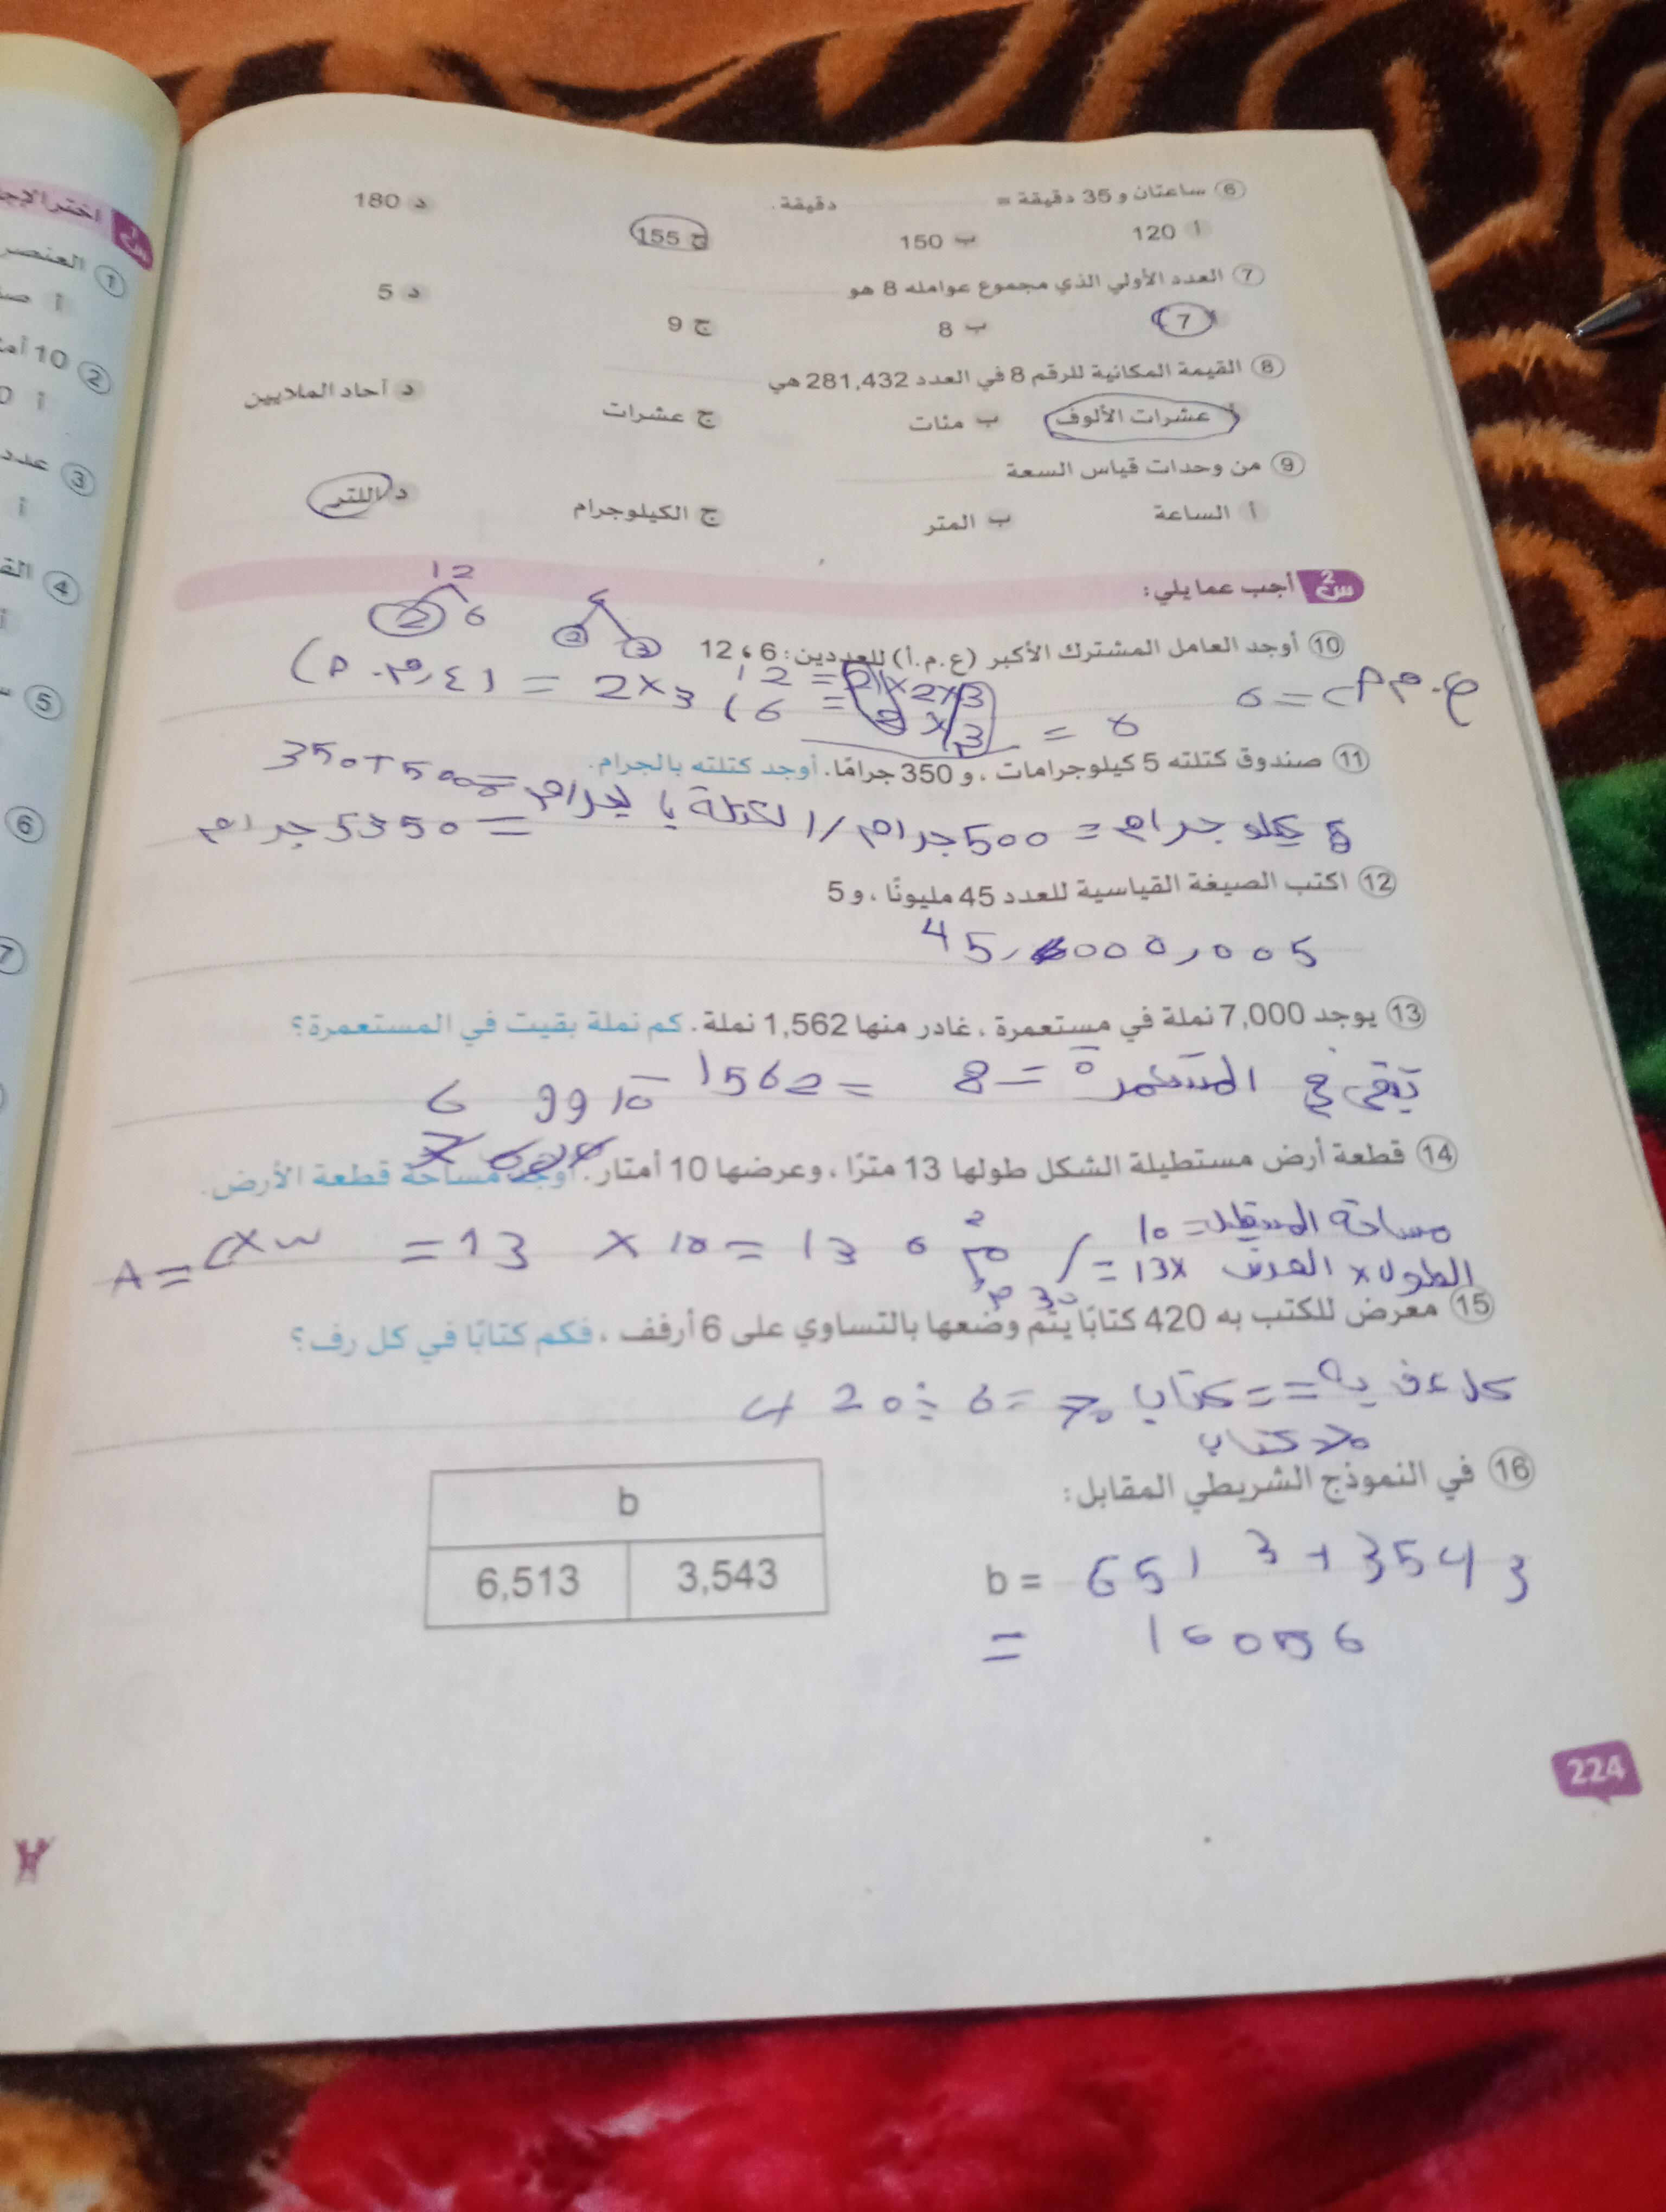 ⑥ ساعتان و 35 دقيقة = دقيقة.
أ 120 ب 150 ج 155 د 180
⑦ العدد الأولي الذي مجموع عوامله 8 هو
أ 7 ب 8 ج 9 د 5
⑧ القيمة المكانية للرقم 8 في العدد 281,432 هي
أ عشرات الألوف ب مئات ج عشرات د آحاد الملايين
⑨ من وحدات قياس السعة
أ الساعة ب المتر ج الكيلوجرام د اللتر
س2 أجب عما يلي:
12
2 6
2 3
⑩ أوجد العامل المشترك الأكبر (ع.م.أ) للعددين: 6 ، 12
12 = 2 × 2 × 3
6 = 2 × 3
(ع.م.أ) = 2 × 3
ع.م.أ = 6
⑪ صندوق كتلته 5 كيلوجرامات ، و 350 جرامًا. أوجد كتلته بالجرام.
5 كيلو جرام = 500 جرام / الكتلة بالجرام = 350 + 5000
= 5350 جرام
⑫ اكتب الصيغة القياسية للعدد 45 مليونًا ، و 5
45,000,005
⑬ يوجد 7,000 نملة في مستعمرة ، غادر منها 1,562 نملة. كم نملة بقيت في المستعمرة؟
تبقى في المستعمرة = 8 = 1562 –
6 9 9 10
⑭ قطعة أرض مستطيلة الشكل طولها 13 مترًا ، وعرضها 10 أمتار. أوجد مساحة قطعة الأرض.
مساحة المستطيل = 10
الطول × العرض = 13 ×
A = L × W = 13 × 10 = 130 م2
⑮ معرض للكتب به 420 كتابًا يتم وضعها بالتساوي على 6 أرفف ، فكم كتابًا في كل رف؟
420 ÷ 6 = 70 كتاب
70 كتاب
⑯ في النموذج الشريطي المقابل:
b
6,513 3,543
b = 6513 + 3543
= 10056
224
اختر الإجا
① العنصر
أ
② 10
أ
③ عدد
أ
④
⑤
⑥